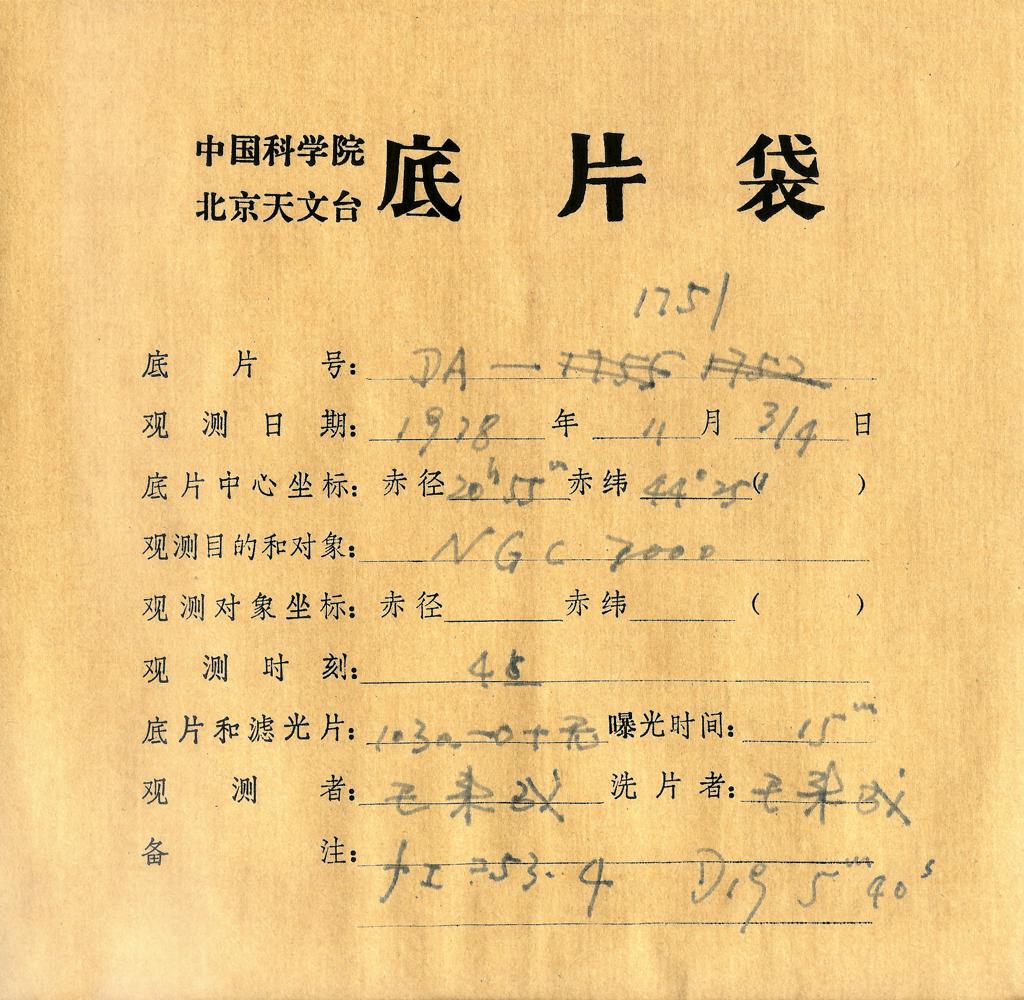 中国科学院
北京天文台 底片袋
1751
底片号: DA — 1755 1752
观测日期: 1978 年 11 月 3/4 日
底片中心坐标: 赤径 20h 55m 赤纬 44° 25' ( )
观测目的和对象: NGC 7000
观测对象坐标: 赤径 赤纬 ( )
观测时刻: 48
底片和滤光片: 103a-O+无 曝光时间: 15m
观测者: 洗片者:
备注:
253.4 D19 5m 40s